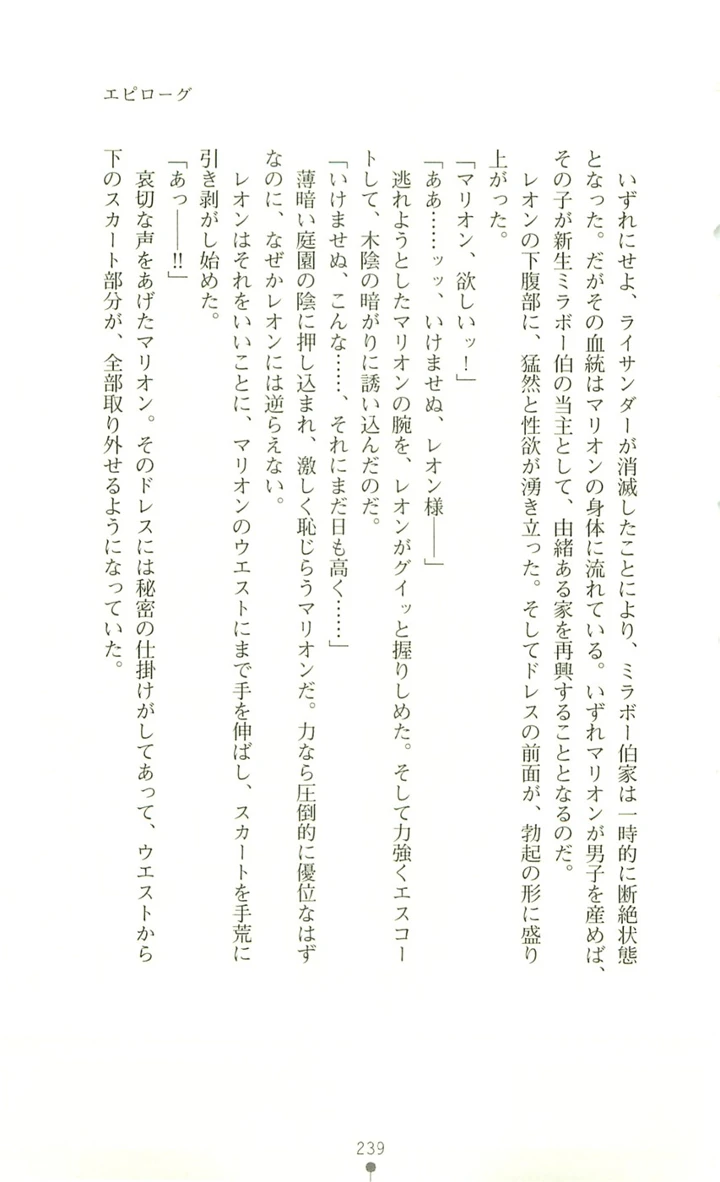 エピローグ
　いずれにせよ、ライサンダーが消滅したことにより、ミラボー伯家は一時的に断絶状態
となった。だがその血統はマリオンの身体に流れている。いずれマリオンが男子を産めば、
その子が新生ミラボー伯の当主として、由緒ある家を再興することとなるのだ。
　レオンの下腹部に、猛然と性欲が湧き立った。そしてドレスの前面が、勃起の形に盛り
上がった。
「マリオン、欲しいッ！」
「ああ……ッッ、いけませぬ、レオン様――」
　逃れようとしたマリオンの腕を、レオンがグイッと握りしめた。そして力強くエスコー
トして、木陰の暗がりに誘い込んだのだ。
「いけませぬ、こんな……、それにまだ日も高く……」
　薄暗い庭園の陰に押し込まれ、激しく恥じらうマリオンだ。力なら圧倒的に優位なはず
なのに、なぜかレオンには逆らえない。
　レオンはそれをいいことに、マリオンのウエストにまで手を伸ばし、スカートを手荒に
引き剥がし始めた。
「あっ――‼」
　哀切な声をあげたマリオン。そのドレスには秘密の仕掛けがしてあって、ウエストから
下のスカート部分が、全部取り外せるようになっていた。
239